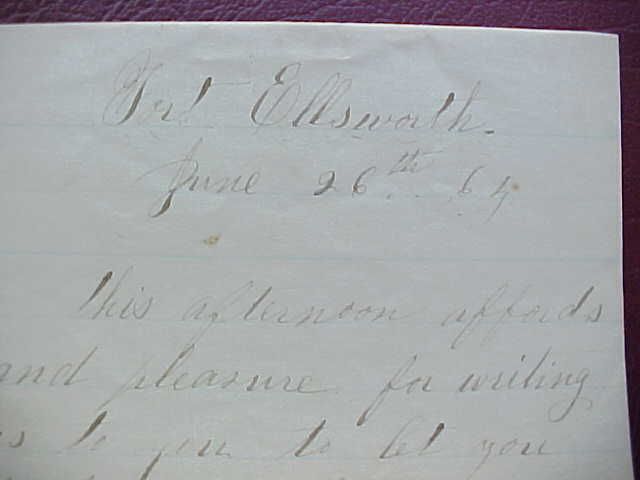 Fort Ellsworth.
June 26th 64
This afternoon affords
and pleasure for writing
to you to let you